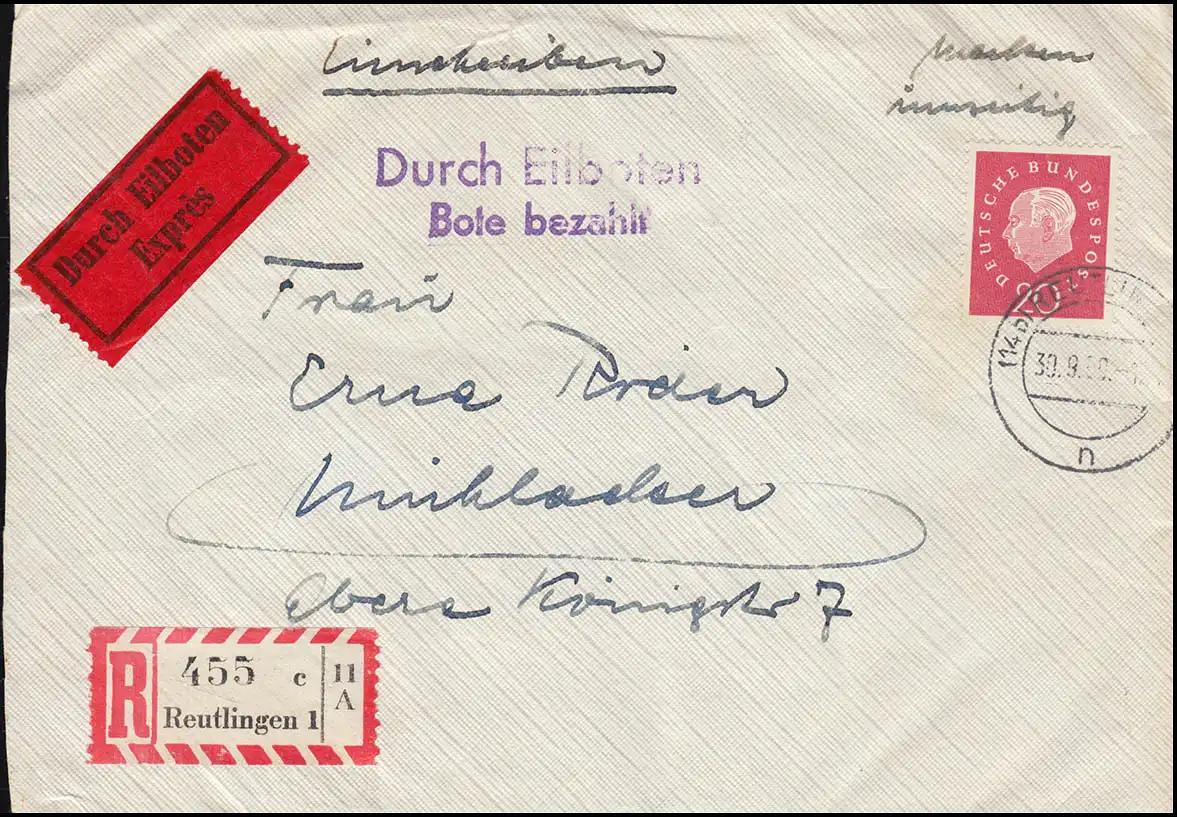 Einschreiben
Marken
Durch Eilboten
Exprès
Durch Eilboten
Bote bezahlt
DEUTSCHE BUNDESPOST
20
30.9.
n
Frau
Erna
Obere Königstr 7
R 455 c 11 A
Reutlingen 1